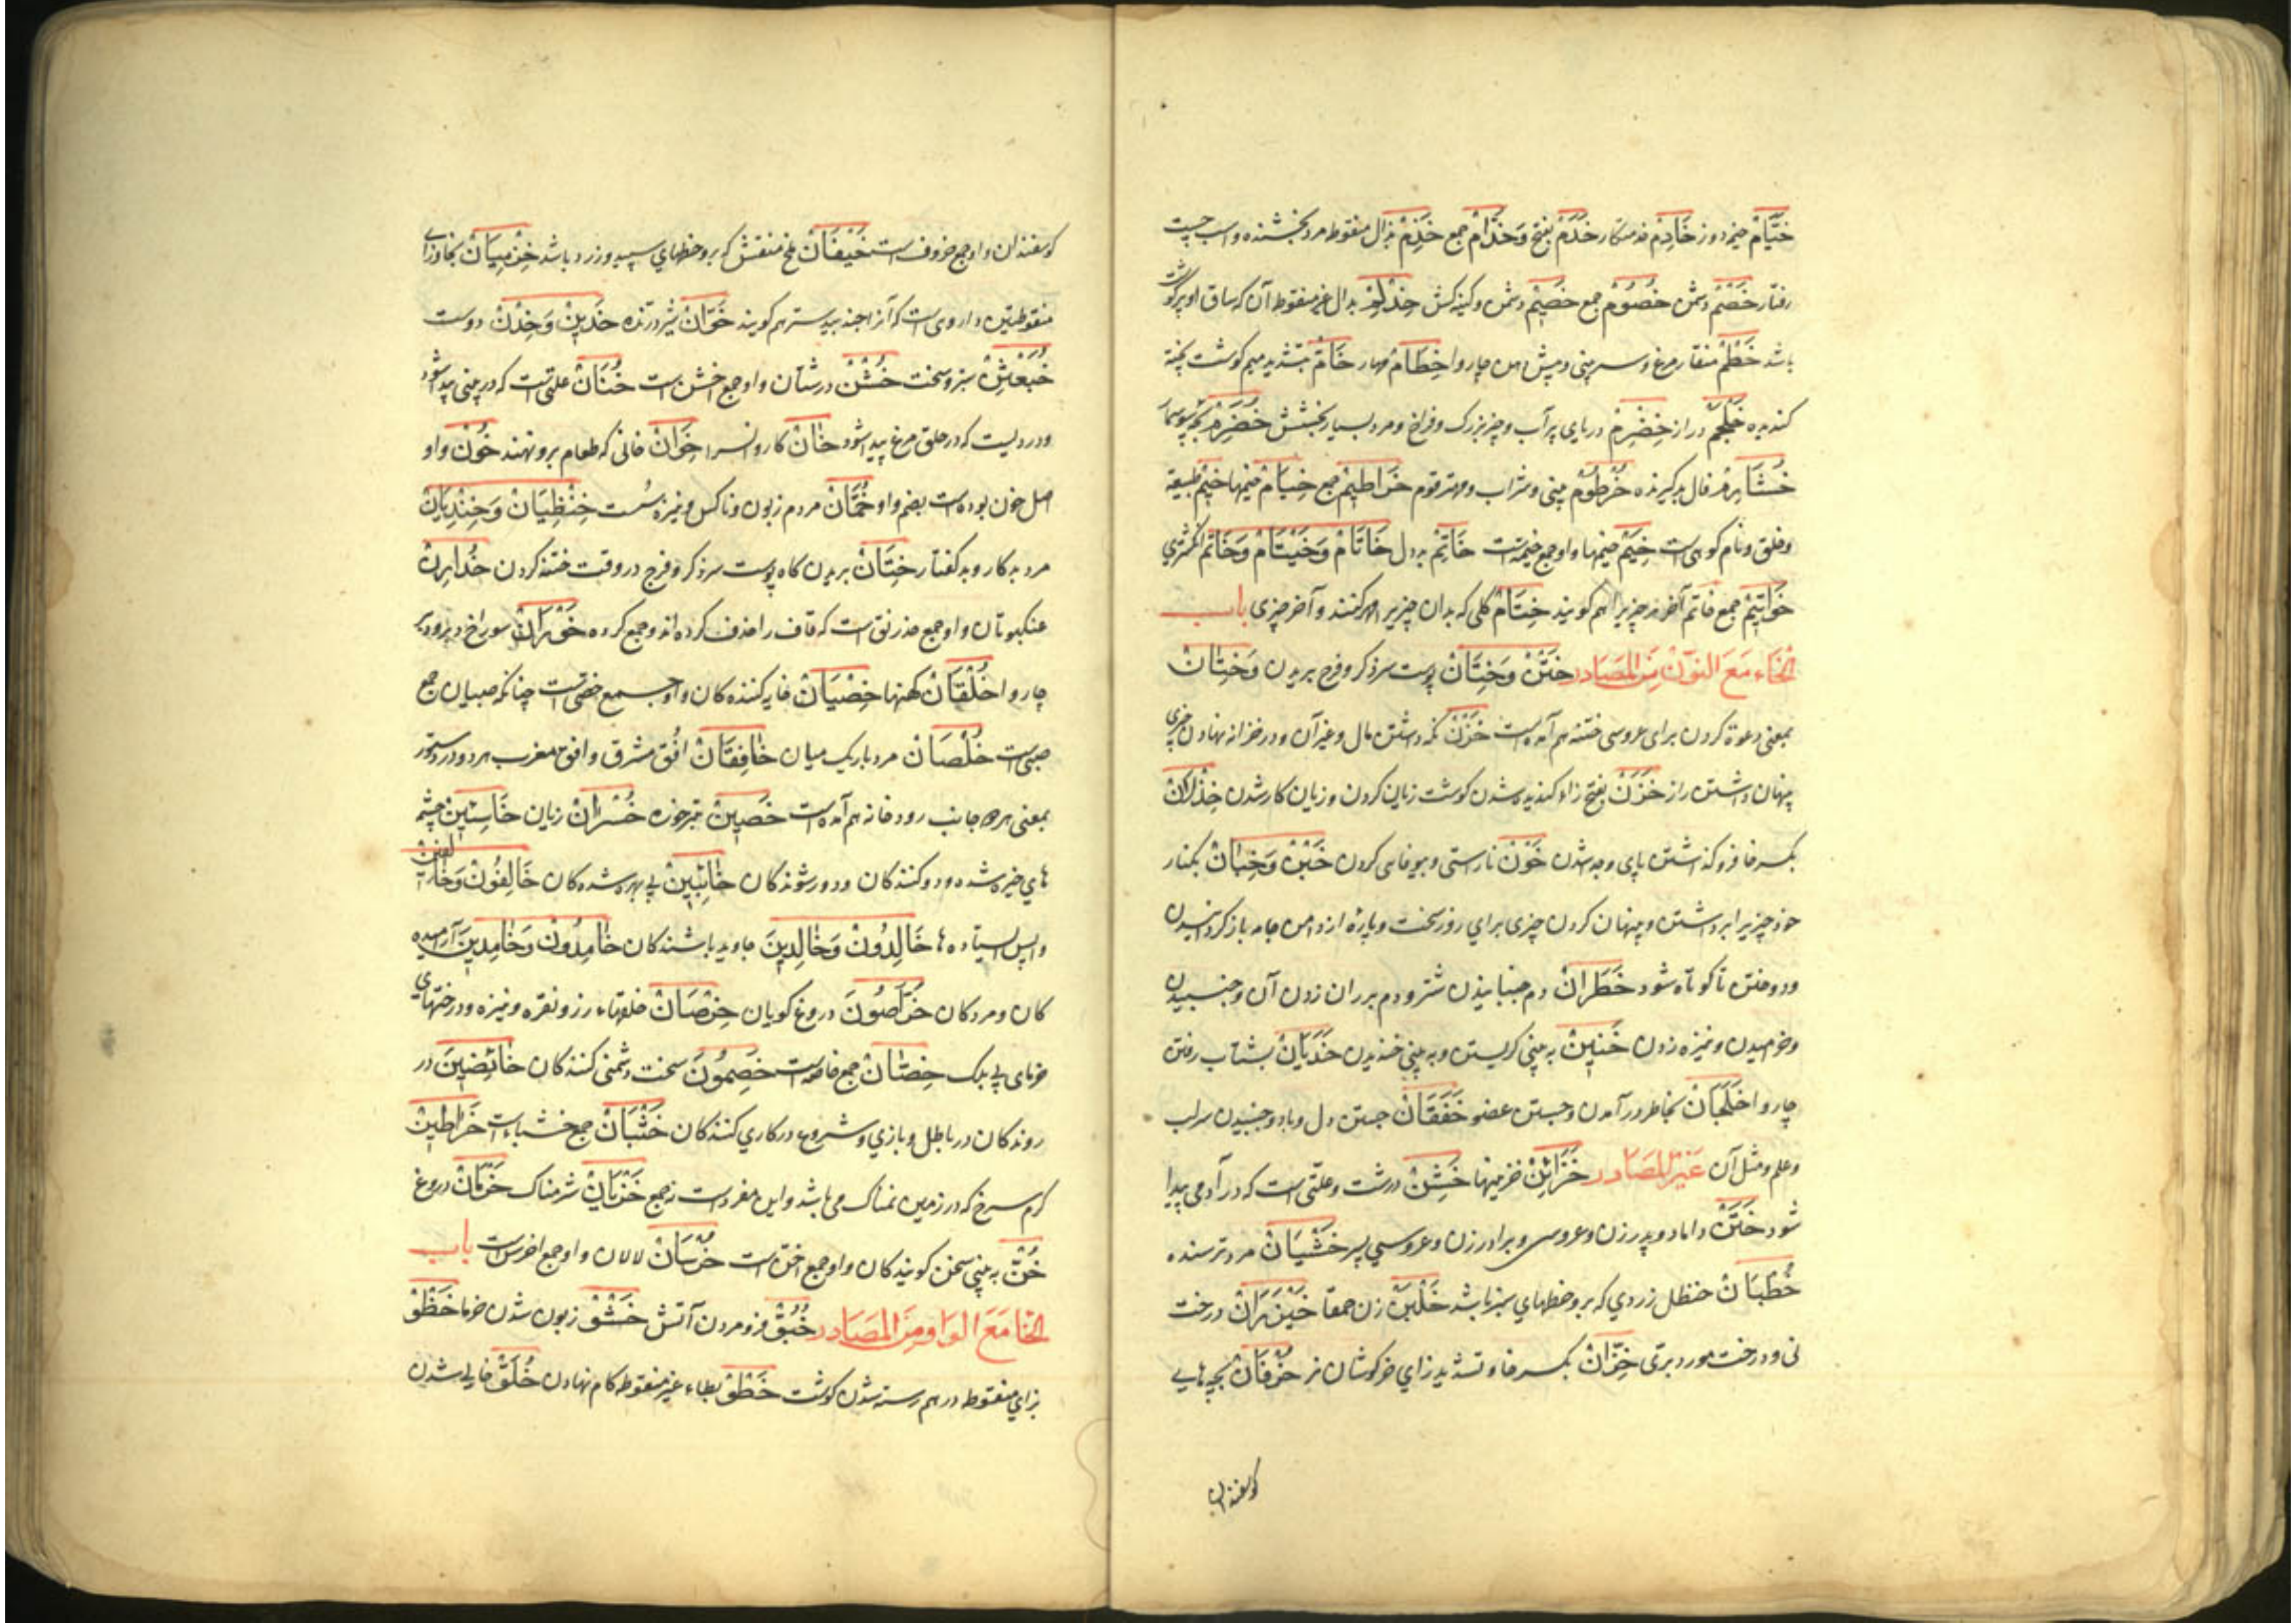 خَیَّامْ خیمه دوز خَادِمْ خدمتکار خَدَمْ بفتح وَخُدَّامْ جمع خَذِمْ بذال منقوطه مرد بخشنده و اسب چست
رفتار خَصْمْ دشمن خُصُومْ جمع خَصِیْمْ دشمن و کینه کش خِدْلِمْ بدال غیر منقوطه آن که ساق او پر گوشت
باشد خَطْمْ منقار مرغ و سر بینی و پیش دهن چاروا خِطَامْ مهار خَامّْ بتشدید میم کوشت پخته
کندیده خَلْجَمْ دراز خِضْرِمْ دریای پر آب و چیز بزرک و فراخ و مرد بسیار بخشش خُضَرِمْ بچه سوسمار
خُشَارِمْ فال بد کیرنده خُرْطُوْمْ بینی و شراب و مهتر قوم خَرَاطِیْمْ جمع خِیَامْ خیمها خِیْمْ طبیعة
و خلق و نام کوهی است خِیَمْ خیمها و او جمع خیمتست خَاتِمْ بدل خَاتَامْ وَخَیْتَامْ وَخَاتَمْ انکشتری
خَوَاتِیْمْ جمع خاتم آخر هر چیز را هم کویند خِتَامْ کلی که بدان چیزیرا مهر کنند و آخر چیزی باب
الْخَاء مَعَ النّوْنْ مِنَ الْمَصَادر خَتْنْ وَخِتَانْ پوست سر ذکر و فرج بریدن وَخِتَانْ
بمعنی دعوة کردن برای عروسی ختنه هم آمده است خَزْنْ نکه داشتن مال و غیر آن و در خزانه نهادن چیزی
پنهان داشتن راز خَزَنْ بفتح زاء کندیده شدن کوشت زیان کردن و زیان کار شدن خِذْلَانْ
بکسر خا فرو کذاشتن یاری و جدا شدن خَوْنْ ناراستی و بیوفایی کردن خَبْنْ وَخِبَانْ بکنار
خود چیزیرا برداشتن و پنهان کردن چیزی برای روز سخت و پاره از دامن جامه باز کردانیدن
و دوختن تا کوتاه شود خَطَرانْ دم جنبانیدن شتر و دم بر ران زدن آن و جنبیدن
و خرامیدن و نیزه زدن خَنِیْنْ به بینی کریستن و به بینی خندیدن خَدَیَانْ بشتاب رفتن
چاروا خَلَجَانْ بخاطر در آمدن و جستن عضو خَفَقَانْ جستن دل و باد و جنبیدن سراب
و علم و مثل آن غَیْر الْمَصَادر خَزَائِنْ خزینها خَشِنْ درشت و علّتی است که در آدمی پیدا
شود خَتَنْ داماد و پدر زن و عروسی و برادر زن و عروسی پسر خَشْیَانْ مرد ترسنده
خُطْبَانْ حنظل زردی که برو خطهای سبز باشد خَلْبَنْ زن حمقا خَیْزَرَانْ درخت
نی و درخت مورد برّی خِزَّانْ بکسر خا و تشدید زای خرکوشان نر خِرْفَانْ بچه‌هایی
کوسفندان
کوسفندان و او جمع خروف است خَیْفَانْ ملخ منقش که برو خطهای سپید و زرد باشد خَزْمِیَانْ بخا و زای
منقوطتین داروی است که آنرا جند بیدستر هم کویند خَوَّانْ شیر درنده خَدِیْنْ وَخِدْنْ دوست
خُبَعْثِنْ ستبر و سخت خُشْنْ درشتان و او جمع اخشن است خُنَانْ علتی است که در بینی پیدا شود
و دردیست که در حلق مرغ پیدا شود خَانْ کاروانسرا خِوَانْ خانی که طعام برو نهند خُوْنْ واو
اصل خون بوده است بضم واو خُمَّانْ مردم زبون و ناکس و نیزه سست خِنْظِیَانْ وَخِنْذِیَانْ
مرد بدکار و بد کفتار خِتَانْ بریدن کاه پوست سر ذکر و فرج در وقت ختنه کردن خُدَارِنْ
عنکبوتان و او جمع خدرنق است که قاف را حذف کرده اند و جمع کرده خَوْرَانْ سوراخ دبر و دبر
چاروا خُلْقَانْ کهنها خِصْیَانْ خایه کنده کان و او جمع خصی است چنانکه صبیان جمع
صبی است خُلْصَانْ مرد باریک میان خَافِقَانْ افق مشرق و افق مغرب هر دو در دستور
بمعنی هر دو جانب رودخانه هم آمده است خَصِیْنْ تبر خورد خُسْرَانْ زیان خَاسِئِیْنْ چشم
های خیره شده و دو کنندکان و دور شوندکان خَائِبِیْنْ بی بهره شده کان خَالِفُوْنْ وَخَالِفِیْنْ
واپس ایستاده ها خَالِدُوْنْ وَخَالِدِیْنَ جاوید باشندکان خَامِدُوْنْ وَخَامِدِیْنَ آرامیده
کان و مردکان خَرَّاصُوْنَ دروغ کویان خِرْصَانْ حلقهاء زر و نقره و نیزه و درختهای
خرمای بی بلک خِصَّانْ جمع خاصه است خَصِمُوْنَ سخت دشمنی کنندکان خَائِضِیْنَ در
روندکان در باطل و بازی و شروع در کاری کنندکان خَشْبَانْ جمع خشباء است خَرَاطِیْنْ
کرم سرخ که در زمین نمناک می باشد و این مفرد است نه جمع خَزْیَانْ شرمناک خَرْمَانْ دروغ
خُنّْ به بینی سخن کوینده کان و او جمع اخن است خُرْسَانْ لالان و او جمع اخرس است باب
الْخَا مَعَ الْوَاو مِنَ الْمَصَادر خُبُوّْ فرو مردن آتش خَشْوْ زبون شدن خرما خَظْوْ
بزای منقوطه در هم رسته شدن کوشت خَطْوْ بطاء غیر منقوطه کام نهادن خُلُوّْ خالی شدن